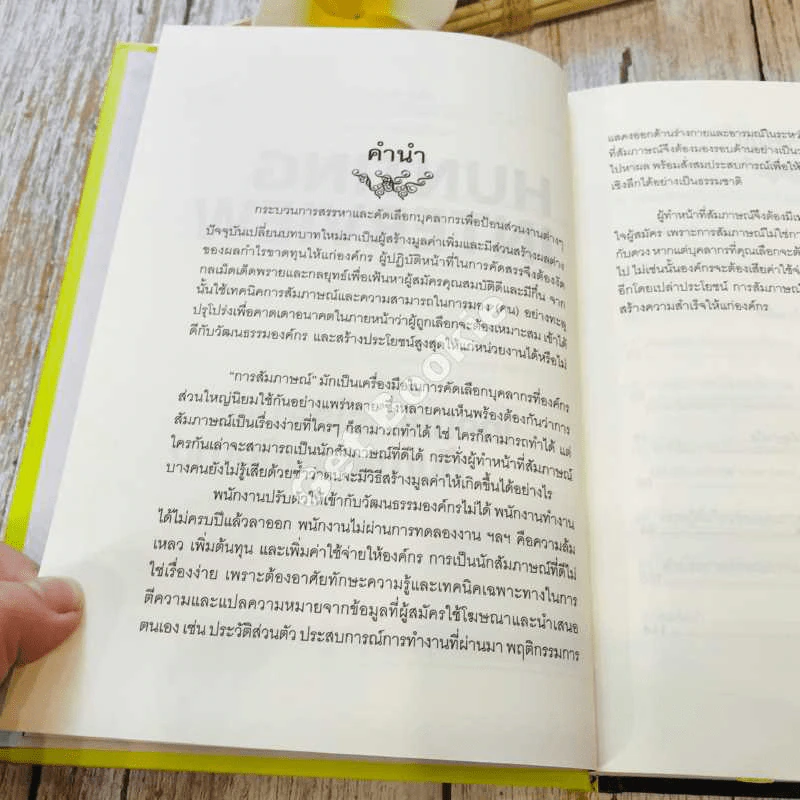 คำนำ
กระบวนการสรรหาและคัดเลือกบุคลากรเพื่อป้อนส่วนงานต่างๆ
ปัจจุบันเปลี่ยนบทบาทใหม่มาเป็นผู้สร้างมูลค่าเพิ่มและมีส่วนสร้างผลต่าง
ของผลกำไรขาดทุนให้แก่องค์กร ผู้ปฏิบัติหน้าที่ในการคัดสรรจึงต้องงัด
กลเม็ดเด็ดพรายและกลยุทธ์เพื่อเฟ้นหาผู้สมัครคุณสมบัติดีและมีกึ๋น จาก
นั้นใช้เทคนิคการสัมภาษณ์และความสามารถในการมอง (คน) อย่างทะลุ
ปรุโปร่งเพื่อคาดเดาอนาคตในภายหน้าว่าผู้ถูกเลือกจะต้องเหมาะสม เข้าได้
ดีกับวัฒนธรรมองค์กร และสร้างประโยชน์สูงสุดให้แก่หน่วยงานได้หรือไม่
"การสัมภาษณ์" มักเป็นเครื่องมือในการคัดเลือกบุคลากรที่องค์กร
ส่วนใหญ่นิยมใช้กันอย่างแพร่หลาย ซึ่งหลายคนเห็นพร้องต้องกันว่าการ
สัมภาษณ์เป็นเรื่องง่ายที่ใครๆ ก็สามารถทำได้ ใช่ ใครก็สามารถทำได้ แต่
ใครกันเล่าจะสามารถเป็นนักสัมภาษณ์ที่ดีได้ กระทั่งผู้ทำหน้าที่สัมภาษณ์
บางคนยังไม่รู้เสียด้วยซ้ำว่าตนจะมีวิธีสร้างมูลค่าให้เกิดขึ้นได้อย่างไร
พนักงานปรับตัวให้เข้ากับวัฒนธรรมองค์กรไม่ได้ พนักงานทำงาน
ได้ไม่ครบปีแล้วลาออก พนักงานไม่ผ่านการทดลองงาน ฯลฯ คือความล้ม
เหลว เพิ่มต้นทุน และเพิ่มค่าใช้จ่ายให้องค์กร การเป็นนักสัมภาษณ์ที่ดีไม่
ใช่เรื่องง่าย เพราะต้องอาศัยทักษะความรู้และเทคนิคเฉพาะทางในการ
ตีความและแปลความหมายจากข้อมูลที่ผู้สมัครใช้โฆษณาและนำเสนอ
ตนเอง เช่น ประวัติส่วนตัว ประสบการณ์การทำงานที่ผ่านมา พฤติกรรมการ
แสดงออกด้านร่างกายและอารมณ์ในระหว่
ที่สัมภาษณ์จึงต้องมองรอบด้านอย่างเป็น
ไปหาผล พร้อมสั่งสมประสบการณ์เพื่อให้
เชิงลึกได้อย่างเป็นธรรมชาติ
ผู้ทำหน้าที่สัมภาษณ์จึงต้องมี
ใจผู้สมัคร เพราะการสัมภาษณ์ไม่ใช่กา
กับดวง หากแต่บุคลากรที่คุณเลือกจะต้
ไป ไม่เช่นนั้นองค์กรจะต้องเสียค่าใช้จ่
อีกโดยเปล่าประโยชน์ การสัมภาษณ์
สร้างความสำเร็จให้แก่องค์กร
Get Eookie